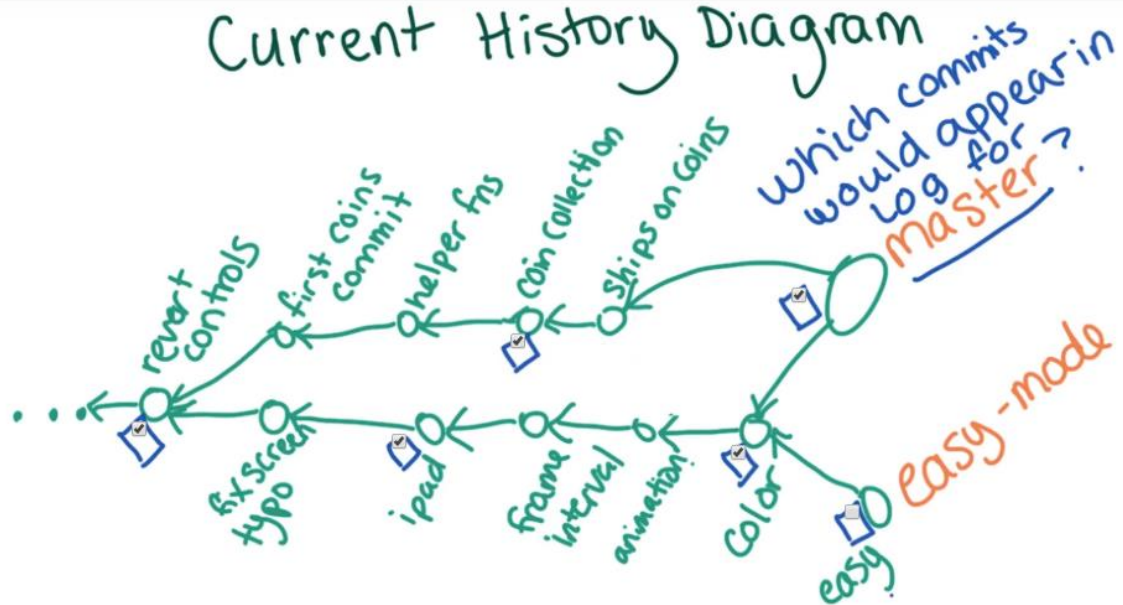 Current History Diagram
which commits
would appear in
log for
master?
revert
controls
first coins
commit
helper fns
coin collection
ships on coins
...
fix screen
typo
ipad
frame
interval
animation
color
easy-mode
easy